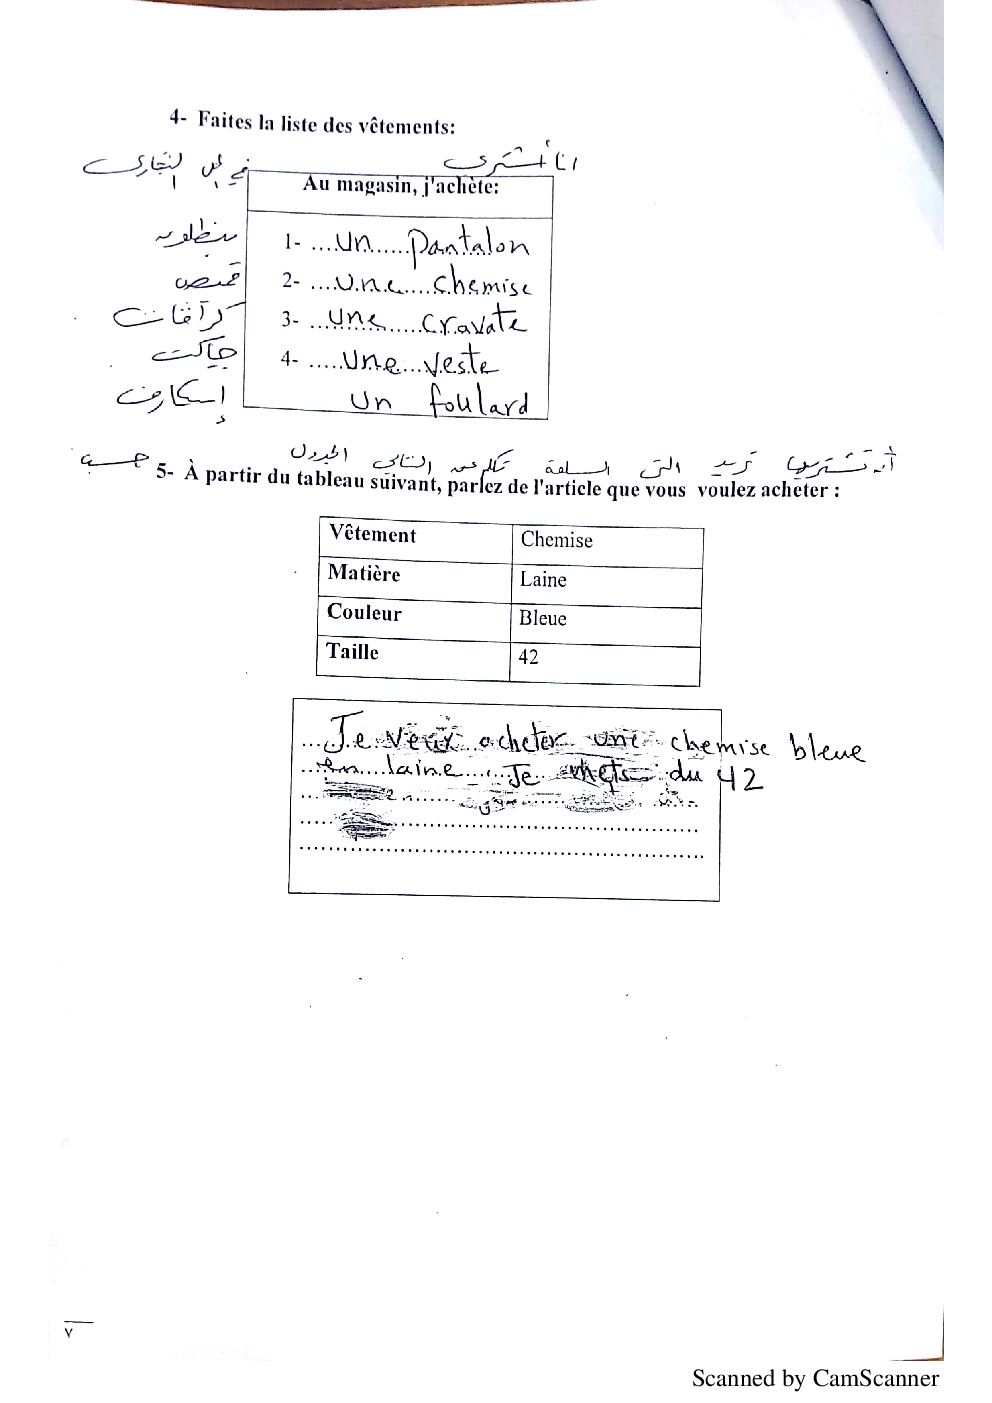 4- Faites la liste des vêtements:
انا أشترى في المحل التجارى
Au magasin, j'achète:
1- ....un.....pantalon بنطلون
2- ...une....chemise قميص
3- ...une.....cravate كرآفات
4- .....une...veste جاكت
un foulard إسكارف
حسب الجدول التالي تكلم عن السلعة التى تريد أن تشتريها
5- À partir du tableau suivant, parlez de l'article que vous voulez acheter :
Vêtement Chemise
Matière Laine
Couleur Bleue
Taille 42
...Je veux acheter une chemise bleue
...en....laine.....Je mets du 42
٧
Scanned by CamScanner